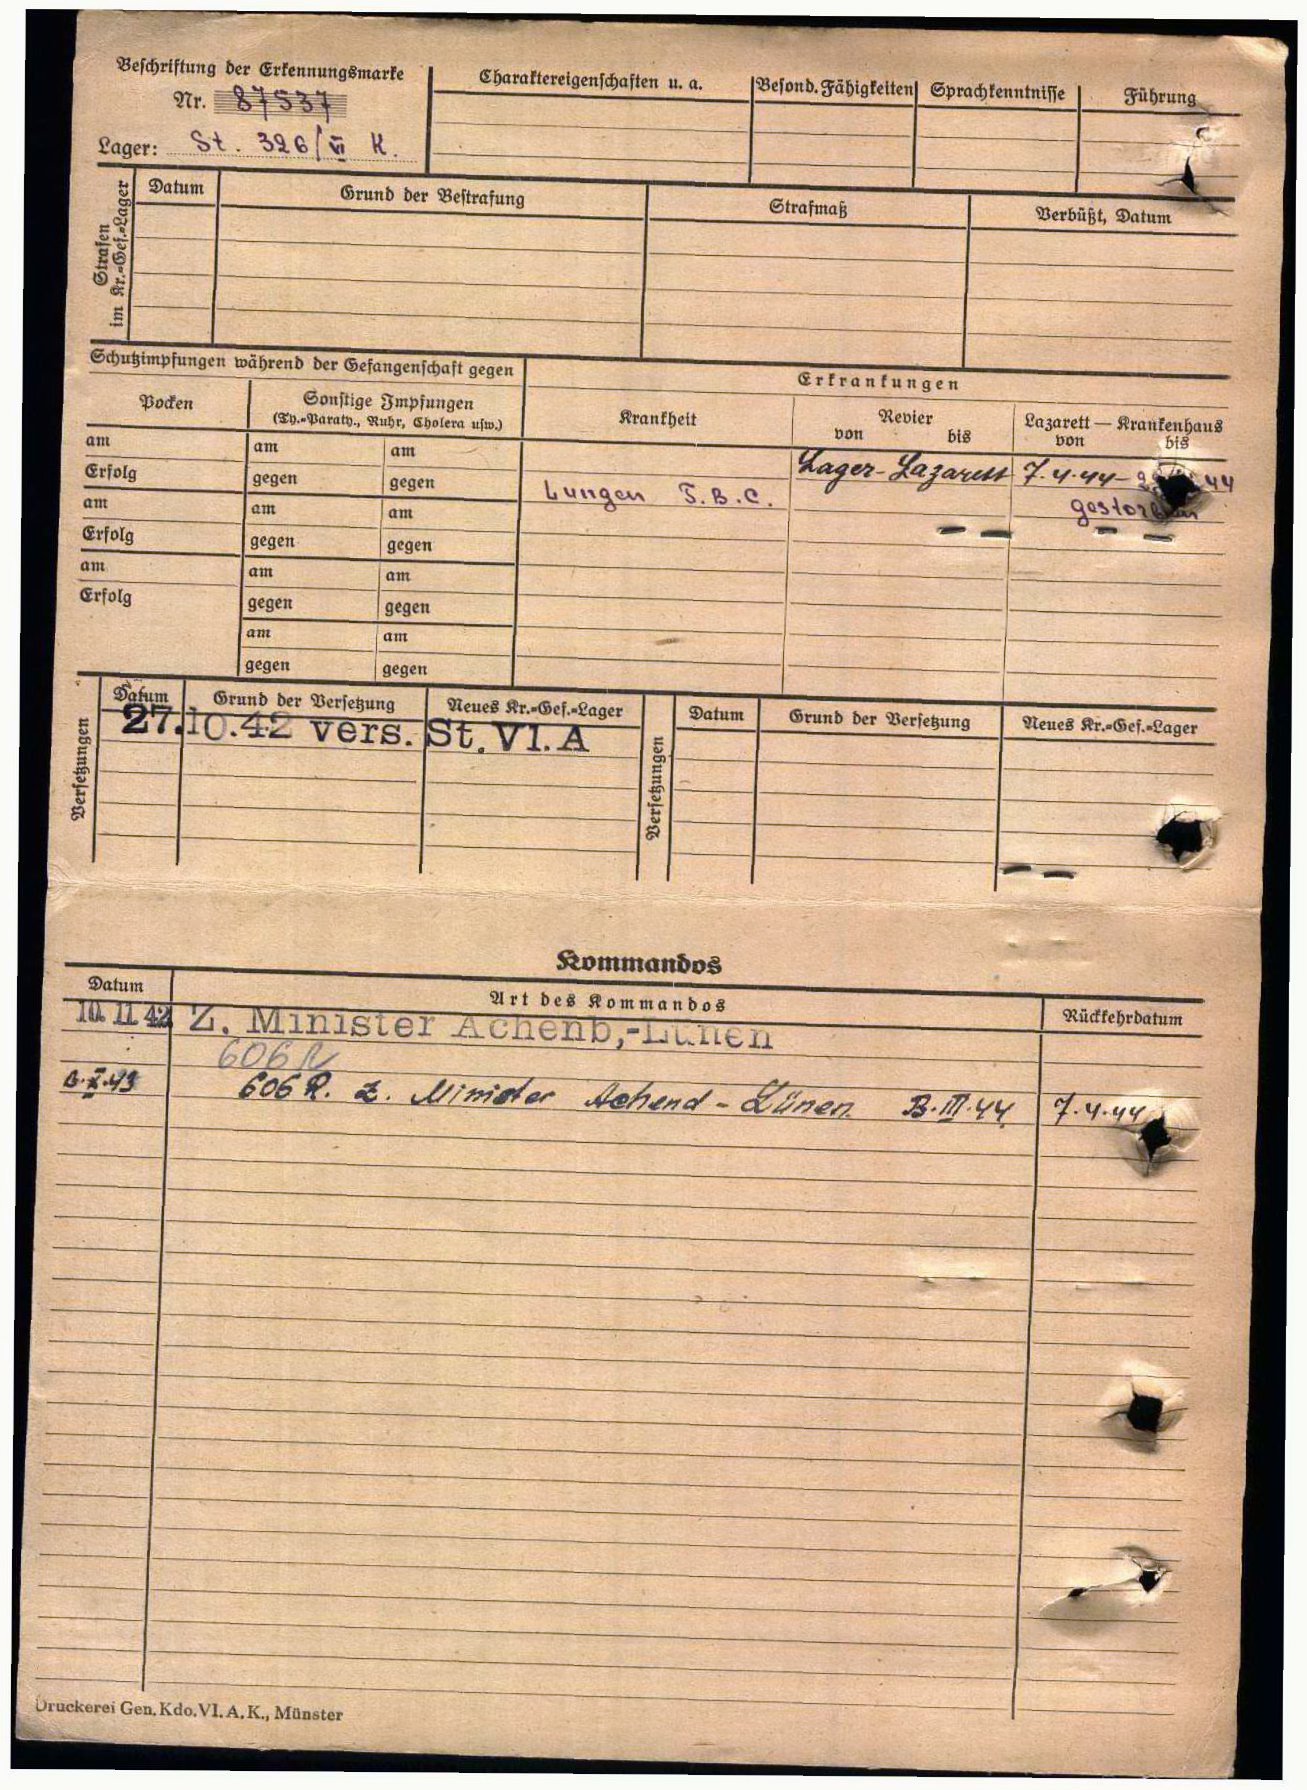 Beschriftung der Erkennungsmarke
Nr. 87537
Lager: St. 326/VI K.
Charaktereigenschaften u. a.
Besond. Fähigkeiten
Sprachkenntnisse
Führung
Strafen
im Kr.-Gef.-Lager
Datum
Grund der Bestrafung
Strafmaß
Verbüßt, Datum
Schutzimpfungen während der Gefangenschaft gegen
Erkrankungen
Pocken
Sonstige Impfungen
(Ty.-Paraty., Ruhr, Cholera usw.)
Krankheit
Revier
von bis
Lazarett — Krankenhaus
von bis
am am am
Lager-Lazarett 7.4.44- 44
Erfolg gegen gegen
Lungen T.B.C. gestorben
am am am
Erfolg gegen gegen
am am am
Erfolg gegen gegen
am am
gegen gegen
Versetzungen
Datum Grund der Versetzung Neues Kr.-Gef.-Lager
27.10.42 vers. St. VI. A
Versetzungen
Datum Grund der Versetzung Neues Kr.-Gef.-Lager
Kommandos
Datum Art des Kommandos Rückkehrdatum
10. 11. 42 Z. Minister Achenb,-Lünen
606 R
606 R. Z. Minister Achend - Lünen B.III.44 7.4.44
Druckerei Gen. Kdo. VI. A. K., Münster